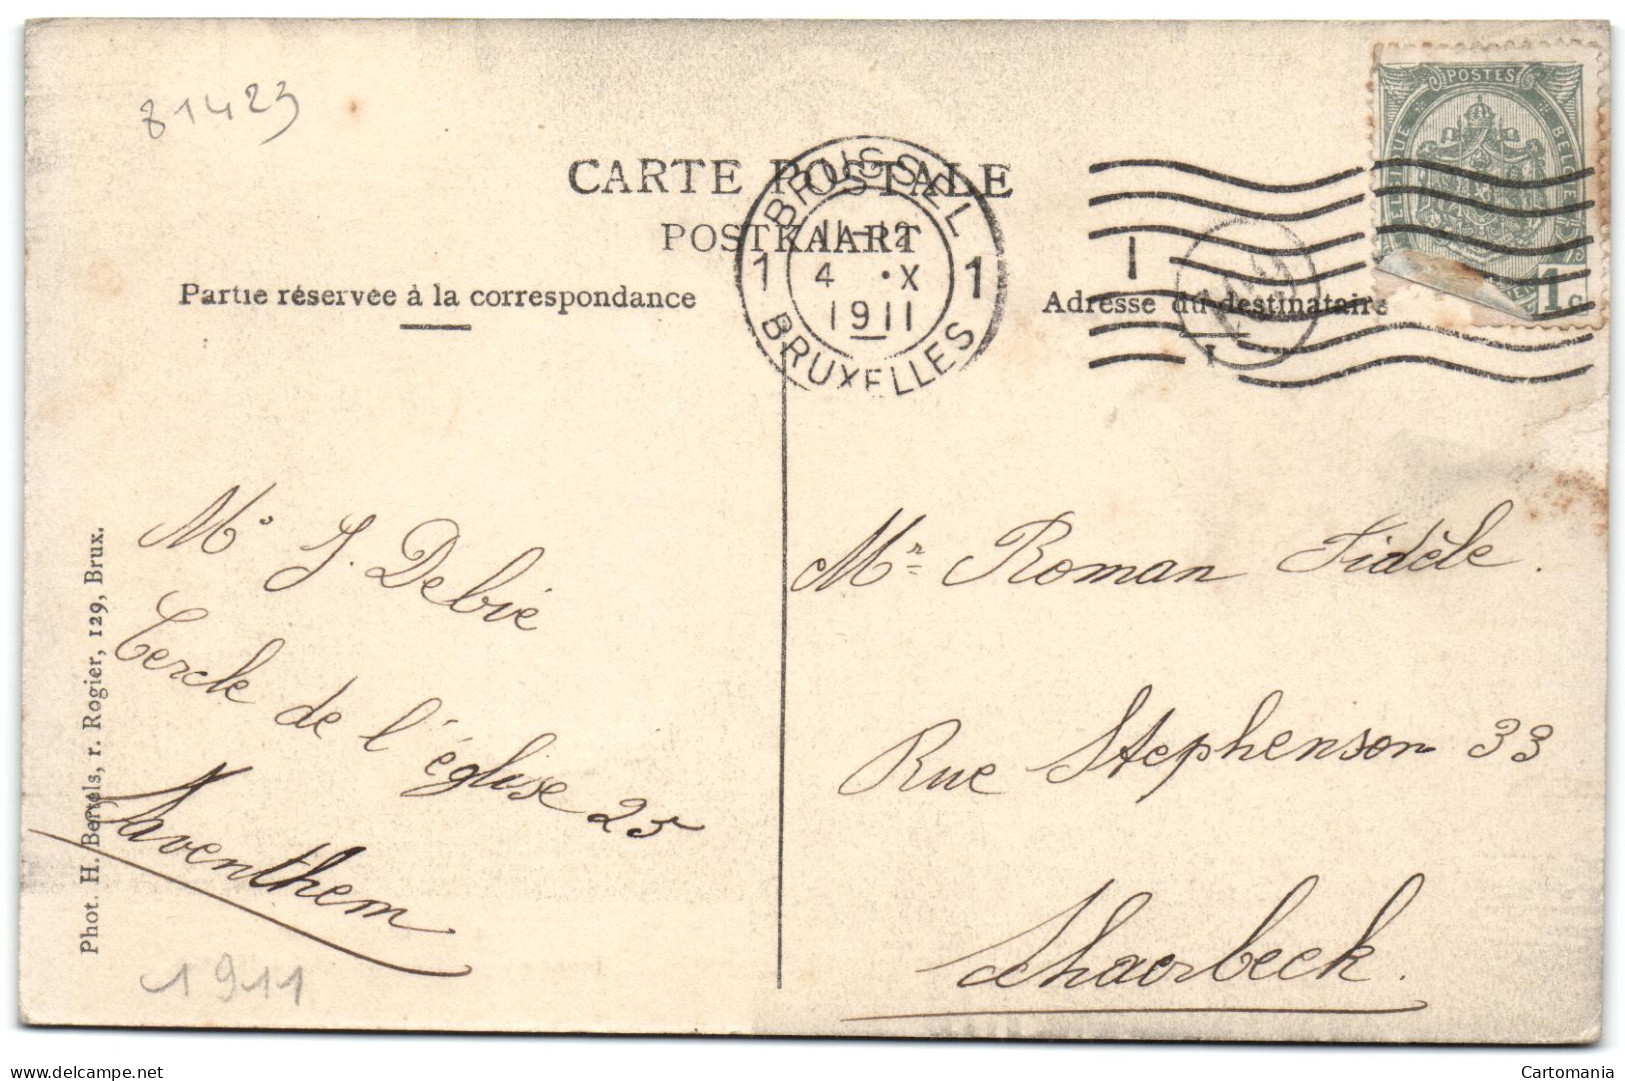 81423
CARTE POSTALE
POSTKAART
Partie réservée à la correspondance
Adresse du destinataire
BRUSSEL
1 1
11-12
4 • X
1911
BRUXELLES
POSTES
BELGIQUE BELGIË
1c
Mr J. Debié
Cercle de l'église 25
Saventhem
1911
Phot. H. Bertels, r. Rogier, 129, Brux.
Mr Roman Fidèle.
Rue Stephenson 33
Schaerbeck.
delcampe.net
Cartomania